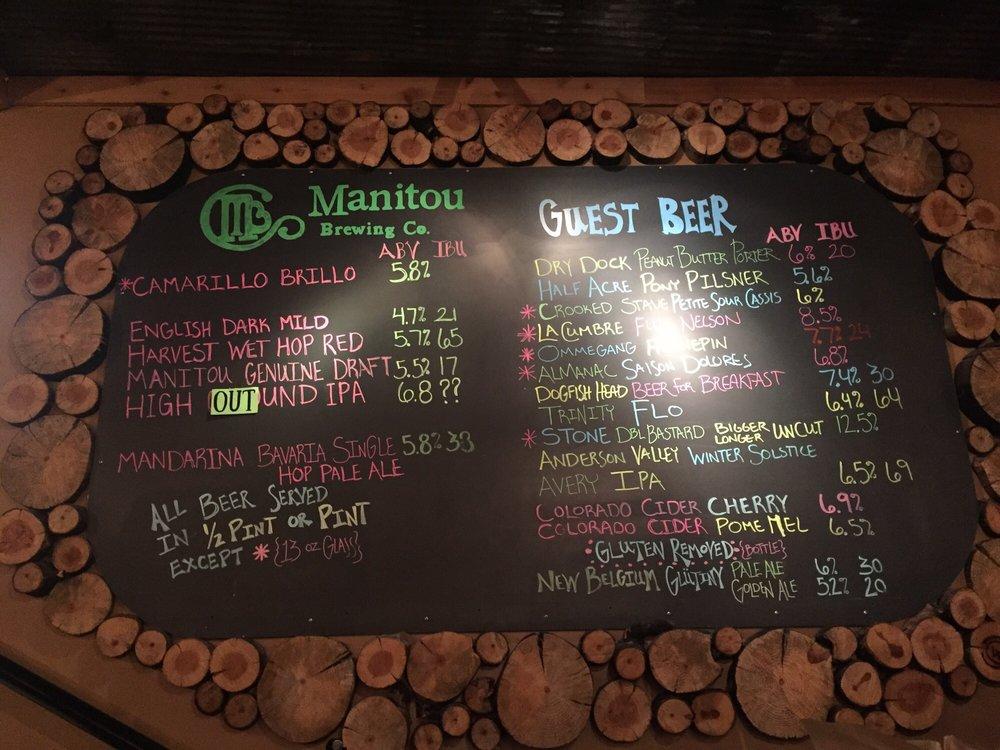 MBC
Manitou
Brewing Co.
ABV IBU
*CAMARILLO BRILLO 5.8%
ENGLISH DARK MILD 4.7% 21
HARVEST WET HOP RED 5.7% 65
MANITOU GENUINE DRAFT 5.5% 17
HIGH OUT UND IPA 6.8 ??
MANDARINA BAVARIA SINGLE 5.8% 33
HOP PALE ALE
ALL BEER SERVED
IN 1/2 PINT OR PINT
EXCEPT * {13 OZ GLASS}
GUEST BEER
ABV IBU
DRY DOCK PEANUT BUTTER PORTER 6% 20
HALF ACRE PONY PILSNER 5.6%
*CROOKED STAVE PETITE SOUR CASSIS 6%
*LA CUMBRE NELSON 8.5%
*OMMEGANG 7.7% 24
*ALMANAC SAISON DOLORES 6.8%
DOGFISH HEAD BEER FOR BREAKFAST 7.4% 30
TRINITY FLO 6.4% 64
*STONE DBL BASTARD BIGGER LONGER UNCUT 12.5%
ANDERSON VALLEY WINTER SOLSTICE
AVERY IPA 6.5% 69
COLORADO CIDER CHERRY 6.9%
COLORADO CIDER POME MEL 6.5%
GLUTEN REMOVED {BOTTLE}
NEW BELGIUM GLÜTINY PALE ALE 6% 30
GOLDEN ALE 5.2% 20